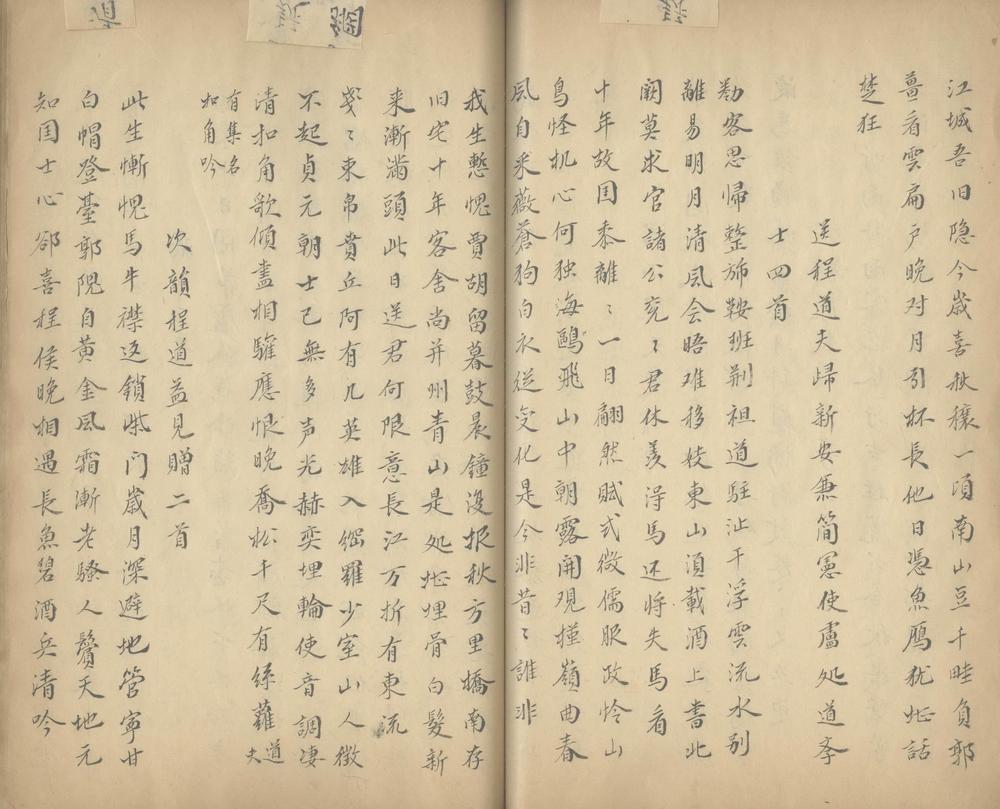 江城吾旧隐今歳喜秋穰一頃南山豆千畦負郭
薑看雲扁户晚对月引杯長他日憑魚鴈犹堪話
楚狂
送程道夫歸新安兼简宪使盧処道李
士四首
勸客思帰整旆鞍班荆祖道駐江干浮雲流水别
離易明月清风会晤难移妓東山須載酒上書北
阙莫求官諸公兖〻君休羡淂馬还将失馬看
十年故国黍離〻一日翩然賦式微儒服政怜山
鳥怪机心何独海鷗飛山中朝露開观槿嶺曲春
风自采薇蒼狗白衣従变化是今非昔〻誰非
我生慙愧賈胡留暮鼓晨鐘漫报秋方里橋南存
旧宅十年客舍尚并州青山是処堪埋骨白髮新
来漸滿頭此日送君何限意長江万折有東流
戔〻束帛賁丘阿有几英雄入網羅少室山人徴
不起貞元朝士已無多声光赫奕埋輪使音調凄
清扣角歌傾盖相驩應恨晚喬松千尺有絲蘿道夫
有集名扣角吟
次韻程道益見贈二首
此生慚愧馬牛襟迈鎖柴门歳月深避地管寧甘
白帽登臺郭隗自黄金风霜漸老騷人鬢天地元
知国士心郤喜程侯晚相遇長魚碧酒兵清吟